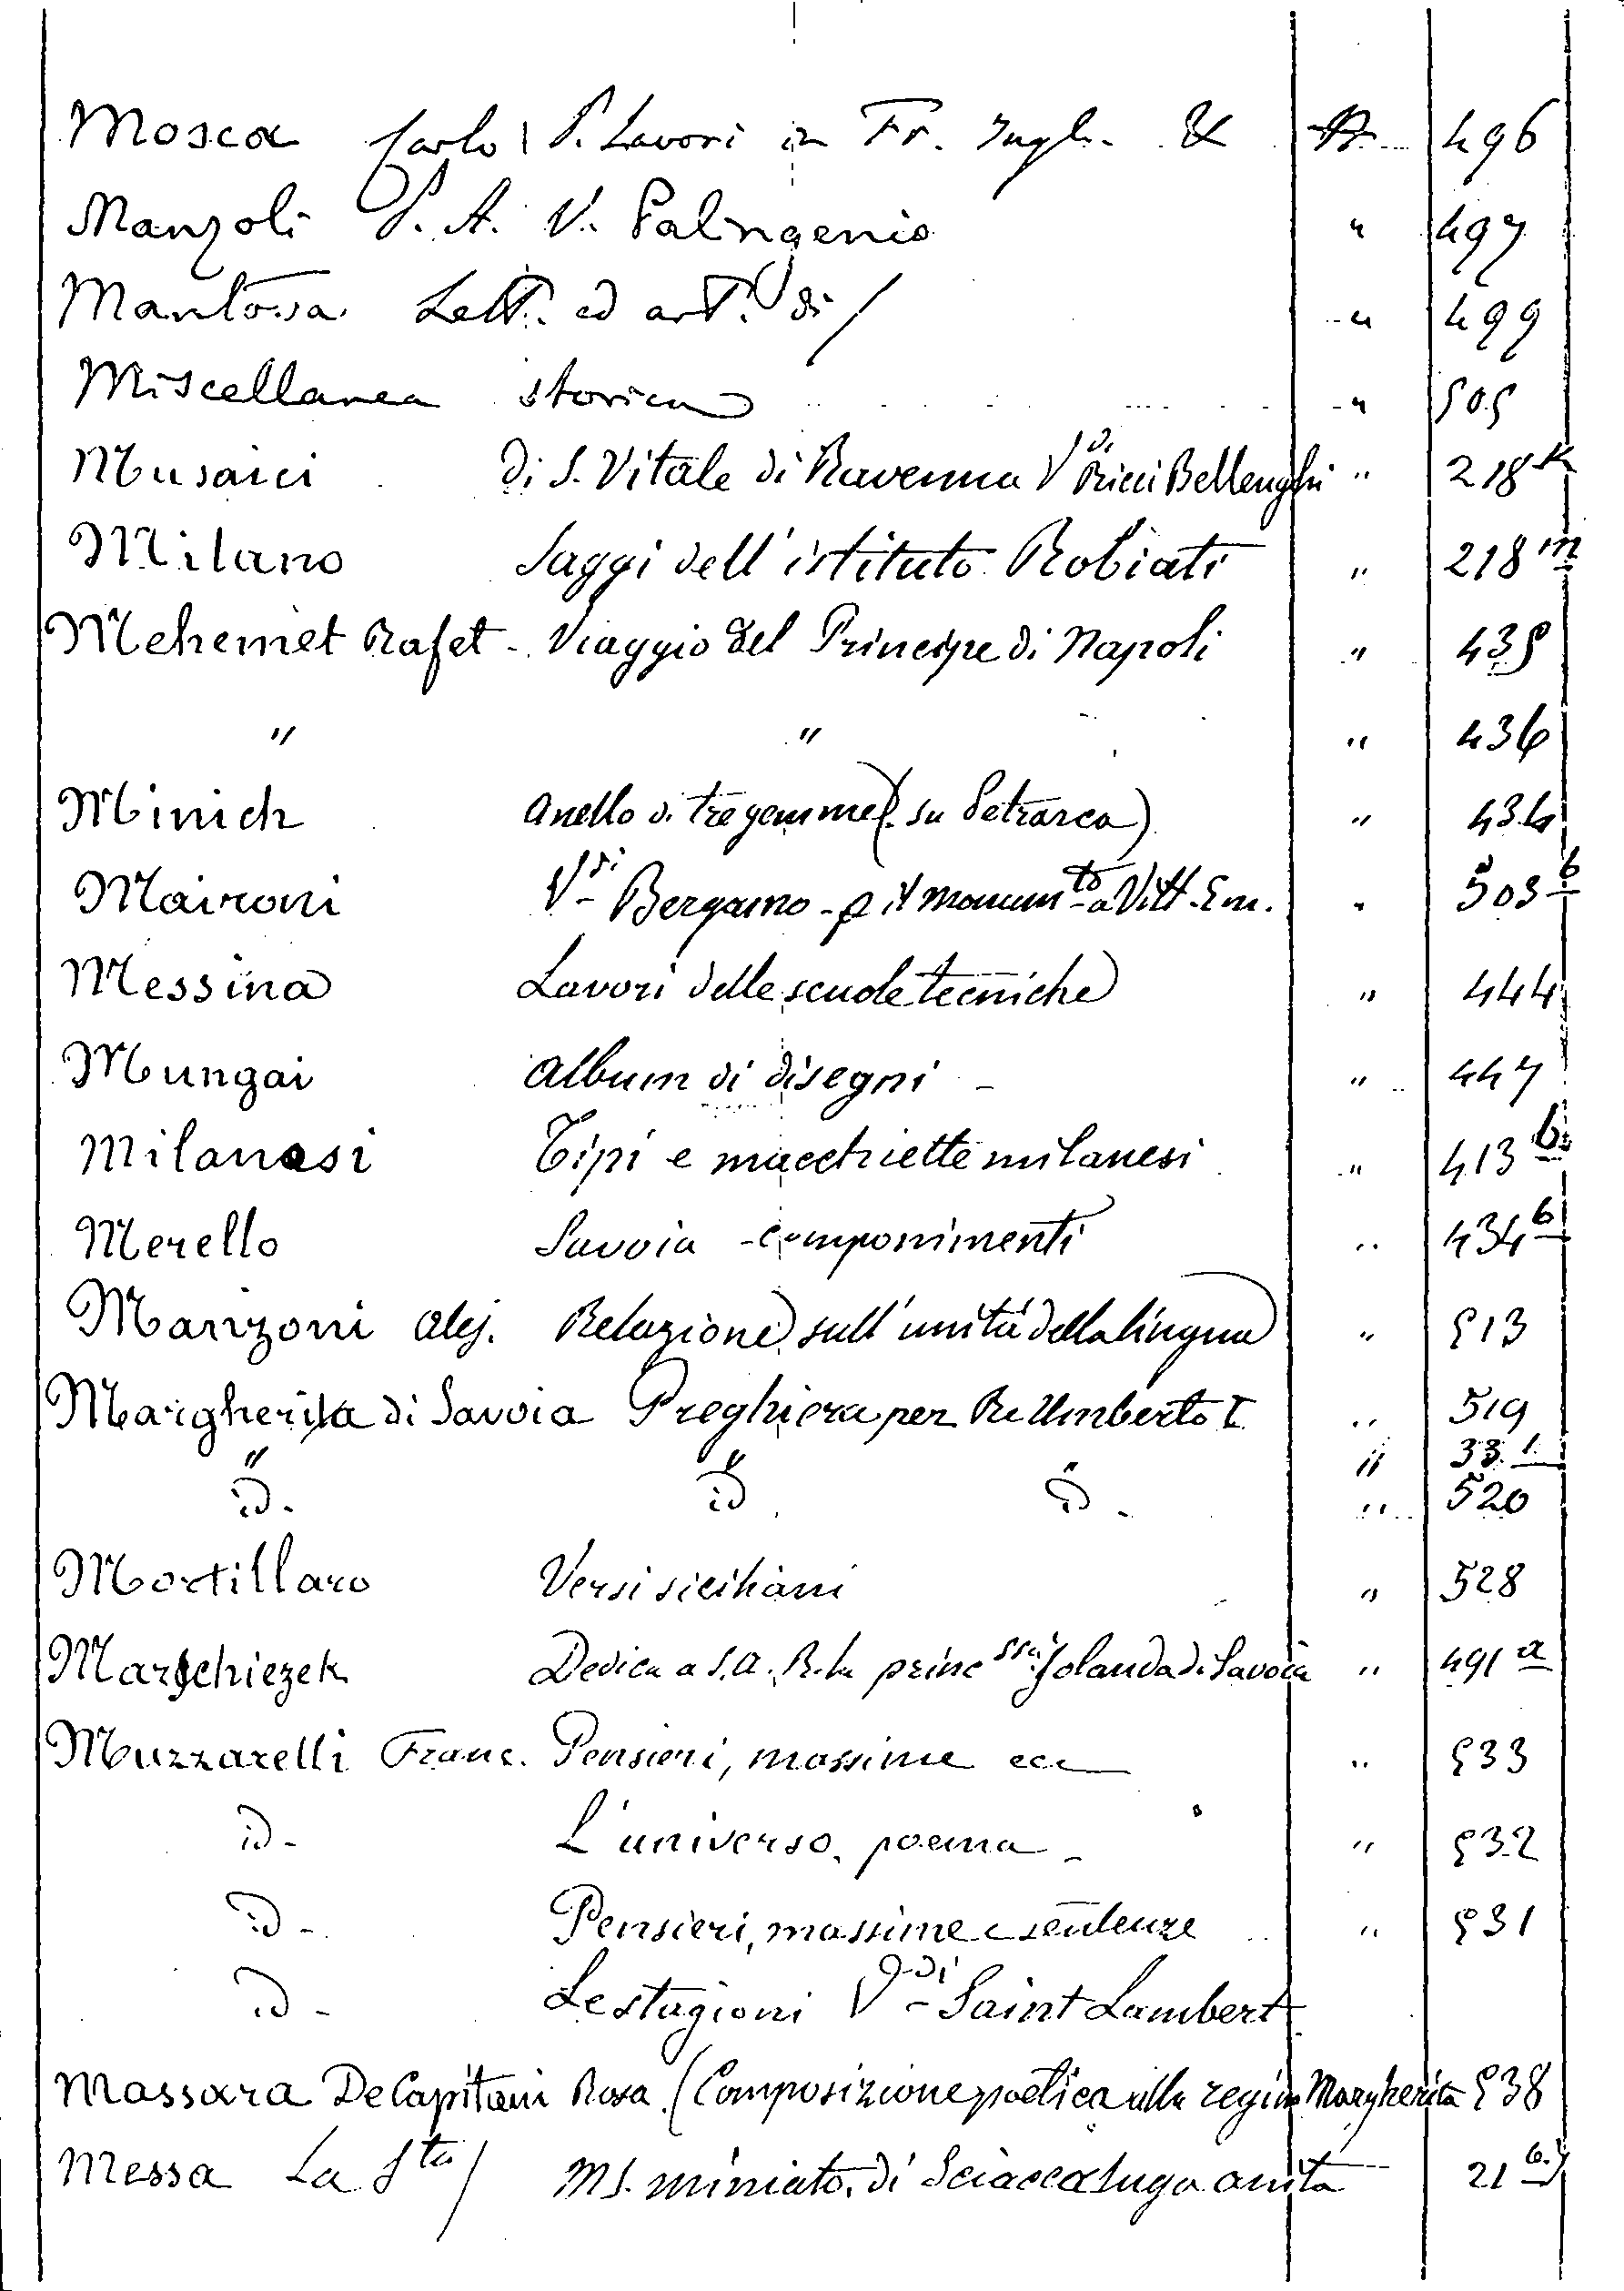 Mosca Carlo / P. Lavori in Fr. Ingl. & 496
Manzoli P. A. V. Palingenio " 497
Mantova Lett. ed art. di / " 499
Miscellanea storica " 505
Musaici di S. Vitale di Ravenna V di Ricci Bellenghi " 218 k
Milano Saggi dell' istituto Robiati " 218 m
Mehemet Rafet - Viaggio del Principe di Napoli " 435
" " " 436
Minich Anello di tre gemme (su Petrarca) " 434
Maironi V si Bergamo - p il monum to a Vitt. Em. " 503 b
Messina Lavori delle scuole tecniche " 444
Mungai Album di disegni - " 447
Milanesi Tipi e macchiette milanesi " 413 b
Merello Savoia - componimenti " 434 b
Manzoni Ales. Relazione sull' unità della lingua " 513
Margherita di Savoia Preghiera per Re Umberto I " 519
" " " " 33.1
id. id id - " 520
Mortillaro Versi siciliani " 528
Marschiezek Dedica a S. A. R. la princ ssa Jolanda di Savoia " 491 a
Muzzarelli Franc. Pensieri, massime ecc " 533
id - L'universo, poema - " 532
id - Pensieri, massime e sentenze " 531
id - Le stagioni V di Saint Lambert
Massara De Capitani Rosa (Composizione poetica alla regina Margherita 538
Messa La Sta / MS. miniato di Sciaccaluga Anita 21 b.